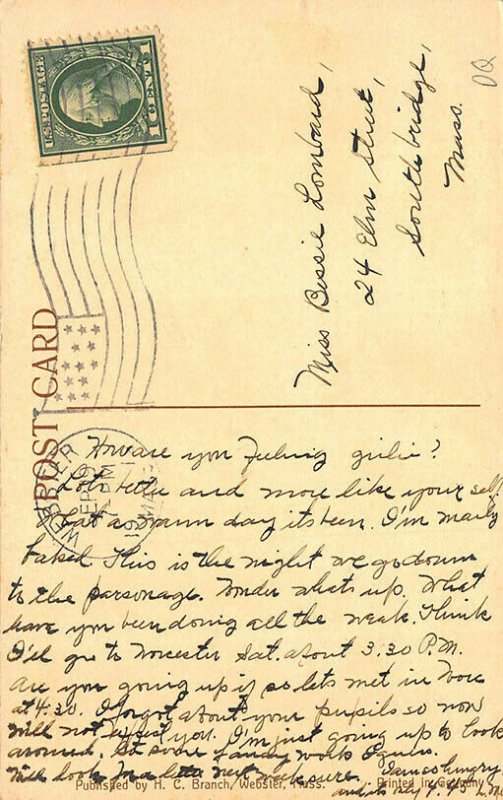 U.S. POSTAGE
1 CENT 1
POST CARD
WEBSTER
SEP
MASS
Miss Bessie Lombard,
24 Elm Street,
Southbridge,
Mass.
How are you Feeling girlie?
Lots better and more like your self
What a warm day its been. I'm nearly
baked. This is the night we go down
to the parsonage. Wonder whats up. What
have you been doing all the weak. Think
I'll go to Worcester Sat. about 3:30 P.M.
are you going up if so lets met in Worc
at 4:30. I forgot about your pupils so now
will not expect you. I'm just going up to look
around. at some fancy work I guess.
Will look for a letter next week sure. I am so hungry
and its
Published by H. C. Branch, Webster, Mass. Printed in Germany